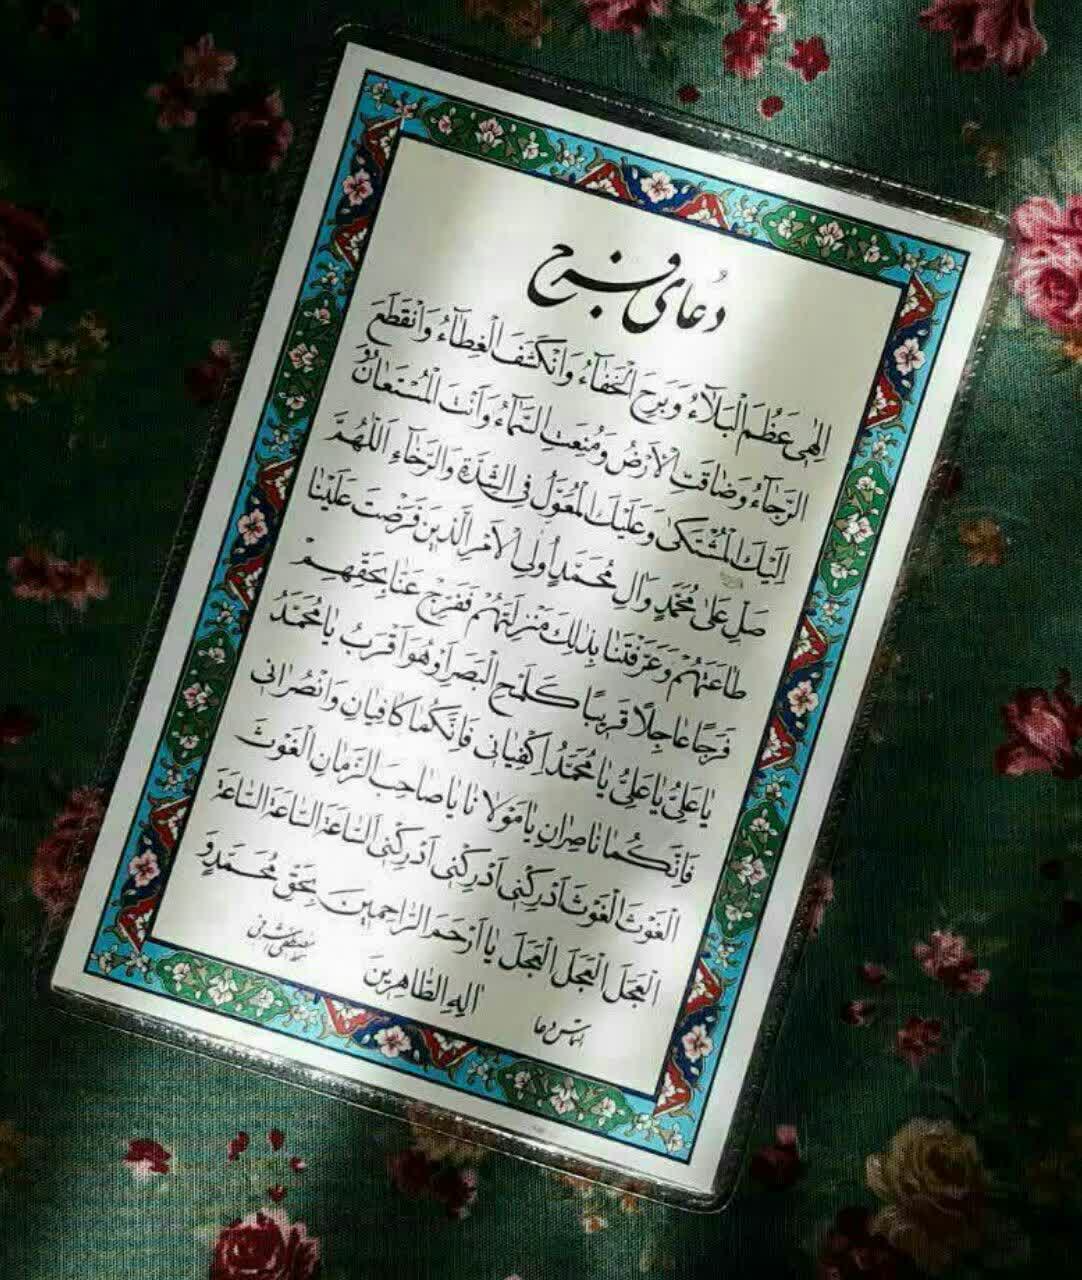 دُعای فرج
اِلٰهی عَظُمَ الْبَلٰآءُ وَ بَرِحَ الْخَفٰآءُ وَانْكَشَفَ الْغِطٰآءُ وَانْقَطَعَ
الرَّجٰآءُ وَضٰاقَتِ الْاَرْضُ وَمُنِعَتِ السَّمٰآءُ وَاَنْتَ الْمُسْتَعٰانُ وَ
اِلَيْكَ الْمُشْتَكىٰ وَعَلَيْكَ الْمُعَوَّلُ فِی الشِّدَّةِ وَالرَّخٰاءِ اَللّٰهُمَّ
صَلِّ عَلىٰ مُحَمَّدٍ وَاٰلِ مُحَمَّدٍ اُولِی الْاَمْرِ الَّذينَ فَرَضْتَ عَلَيْنٰا
طٰاعَتَهُمْ وَعَرَّفْتَنٰا بِذٰلِكَ مَنْزِلَتَهُمْ فَفَرِّجْ عَنّٰا بِحَقِّهِمْ
فَرَجًا عٰاجِلًا قَريبًا كَلَمْحِ الْبَصَرِ اَوْ هُوَ اَقْرَبُ يٰا مُحَمَّدُ
يٰا عَلِیُّ يٰا عَلِیُّ يٰا مُحَمَّدُ اِكْفِيٰانی فَاِنَّكُمٰا كٰافِيٰانِ وَانْصُرٰانی
فَاِنَّكُمٰا نٰاصِرٰانِ يٰا مَوْلٰانٰا يٰا صٰاحِبَ الزَّمٰانِ الْغَوْثَ
الْغَوْثَ الْغَوْثَ اَدْرِكْنی اَدْرِكْنی اَدْرِكْنی اَلسّٰاعَةَ السّٰاعَةَ السّٰاعَةَ
الْعَجَلَ الْعَجَلَ الْعَجَلَ يٰا اَرْحَمَ الرّٰاحِمينَ بِحَقِّ مُحَمَّدٍ وَ
اٰلِهِ الطّٰاهِرينَ
التماس دعا
مصطفی اشرفی